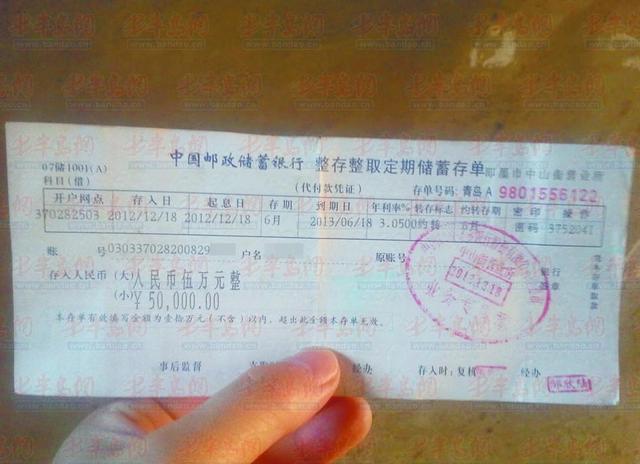 中国邮政储蓄银行 整存整取定期储蓄存单
07储1001(A)
即墨市中山街营业所
科目(借)
(代付款凭证)
存单号码: 青岛 A 9801555122
开户网点 存入日 起息日 存期 到期日 年利率% 转存标志 约转存期 密印 操作
370282503 2012/12/18 2012/12/18 6月 2013/06/18 3.0500 约转 6月 密码 3752041
账 号 0303370282008​29 户名 原账号
存入人民币 (大) 人民币伍万元整
(小) ¥ 50,000.00
银行
签章
本存单有效填写金额为壹拾万元(不含)以内,超出此金额本存单无效。
事后监督 经办 存入时: 复核 经办
2012.12.18
半岛网
www.bandao.cn